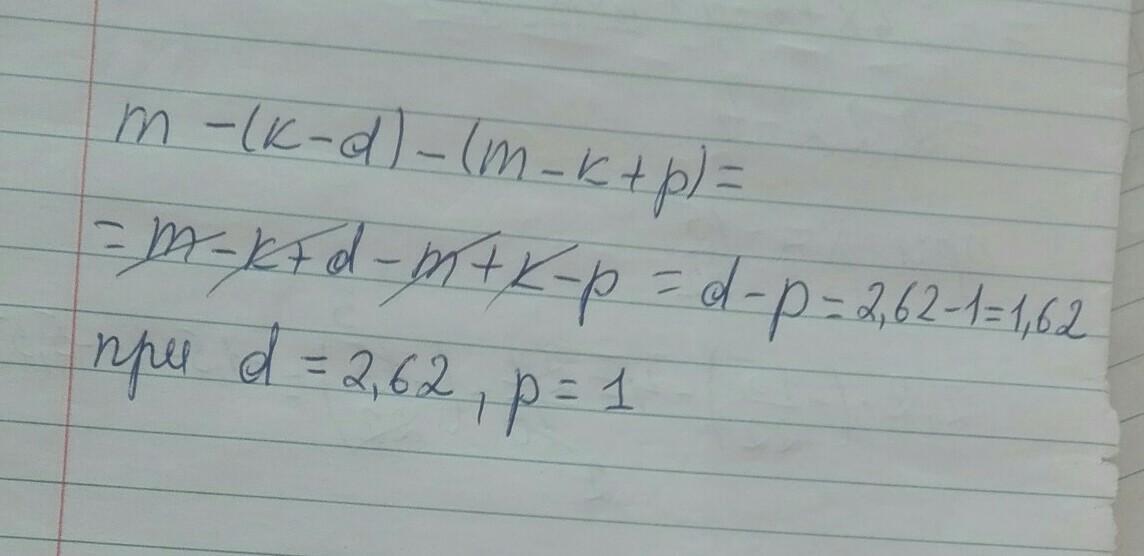 m - (к - d) - (m - к + p) =
= m - к + d - m + к - p = d - p = 2,62 - 1 = 1,62
при d = 2,62, p = 1